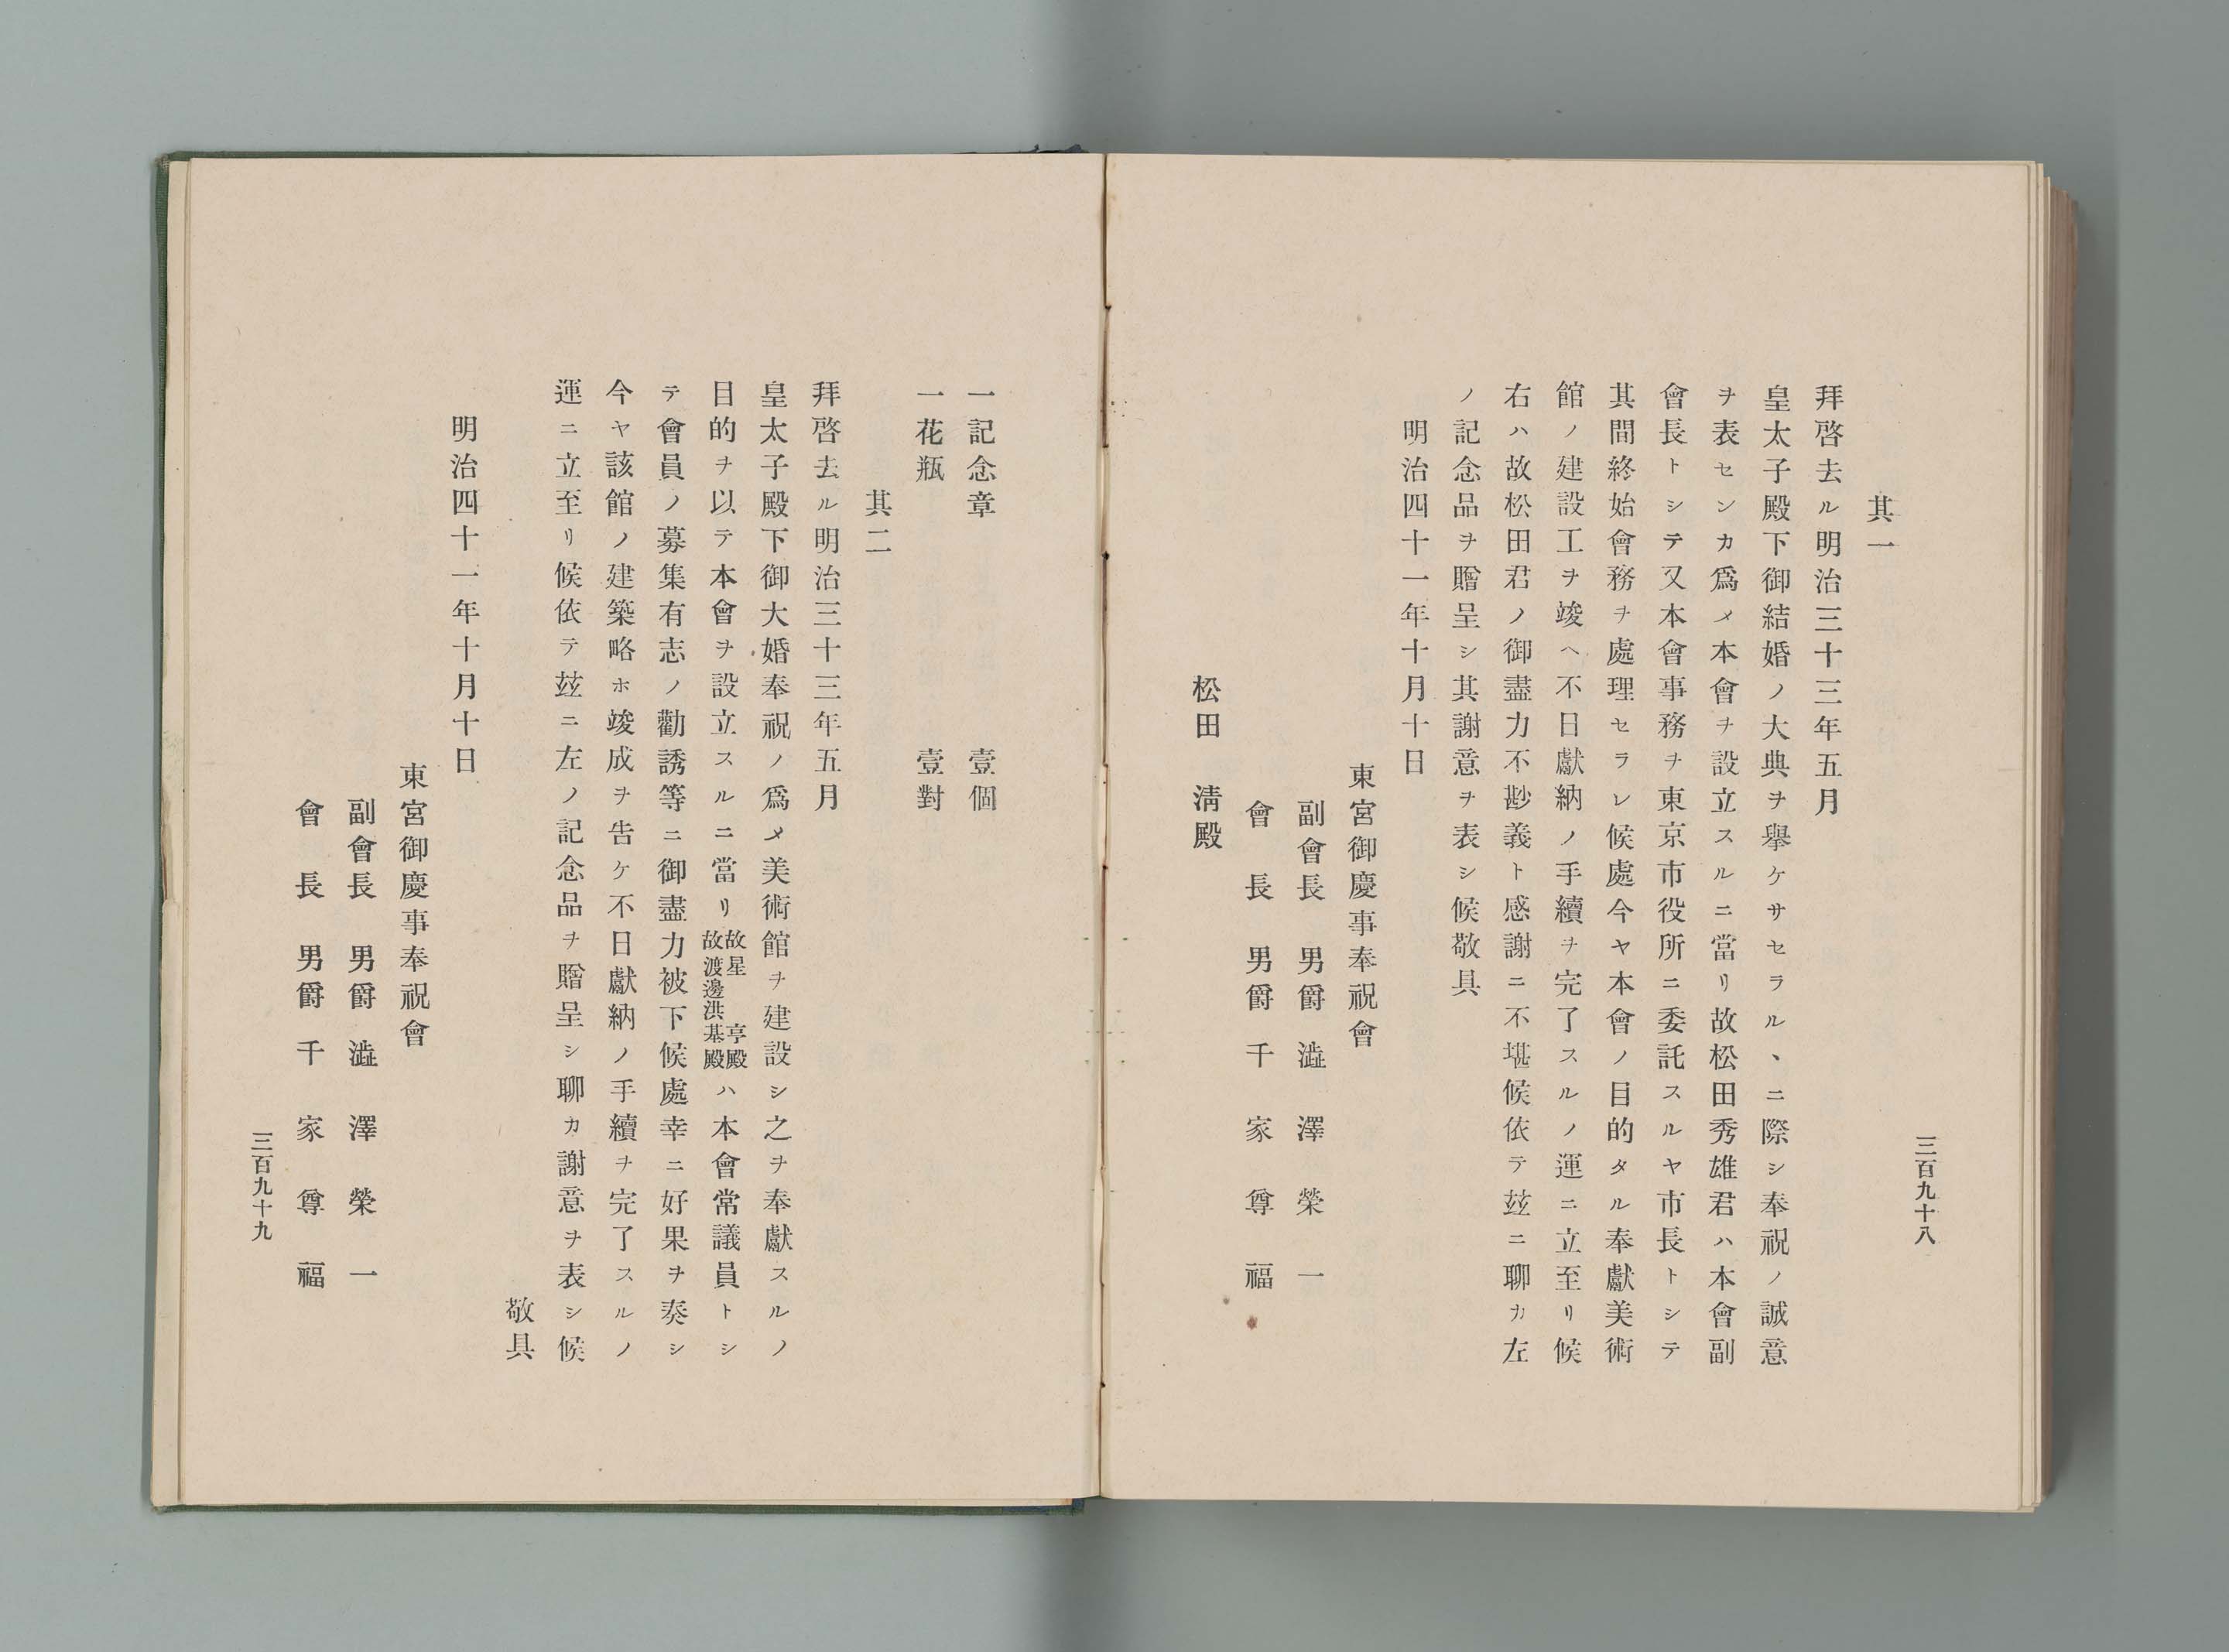 三百九十八
其一
拜啓去ル明治三十三年五月
皇太子殿下御結婚ノ大典ヲ擧ケサセラル、ニ際シ奉祝ノ誠意
ヲ表センカ爲メ本會ヲ設立スルニ當リ故松田秀雄君ハ本會副
會長トシテ又本會事務ヲ東京市役所ニ委託スルヤ市長トシテ
其間終始會務ヲ處理セラレ候處今ヤ本會ノ目的タル奉獻美術
館ノ建設工ヲ竣ヘ不日獻納ノ手續ヲ完了スルノ運ニ立至リ候
右ハ故松田君ノ御盡力不尠義ト感謝ニ不堪候依テ玆ニ聊カ左
ノ記念品ヲ贈呈シ其謝意ヲ表シ候敬具
明治四十一年十月十日
東宮御慶事奉祝會
副會長 男爵 澁澤榮一
會長 男爵 千家尊福
松田 淸殿
一記念章 壹個
一花瓶 壹對
其二
拜啓去ル明治三十三年五月
皇太子殿下御大婚奉祝ノ爲メ美術館ヲ建設シ之ヲ奉獻スルノ
目的ヲ以テ本會ヲ設立スルニ當リ故星 亨殿故渡邊洪基殿ハ本會常議員トシ
テ會員ノ募集有志ノ勸誘等ニ御盡力被下候處幸ニ好果ヲ奏シ
今ヤ該館ノ建築略ホ竣成ヲ告ケ不日獻納ノ手續ヲ完了スルノ
運ニ立至リ候依テ玆ニ左ノ記念品ヲ贈呈シ聊カ謝意ヲ表シ候
敬具
明治四十一年十月十日
東宮御慶事奉祝會
副會長 男爵 澁澤榮一
會長 男爵 千家尊福
三百九十九